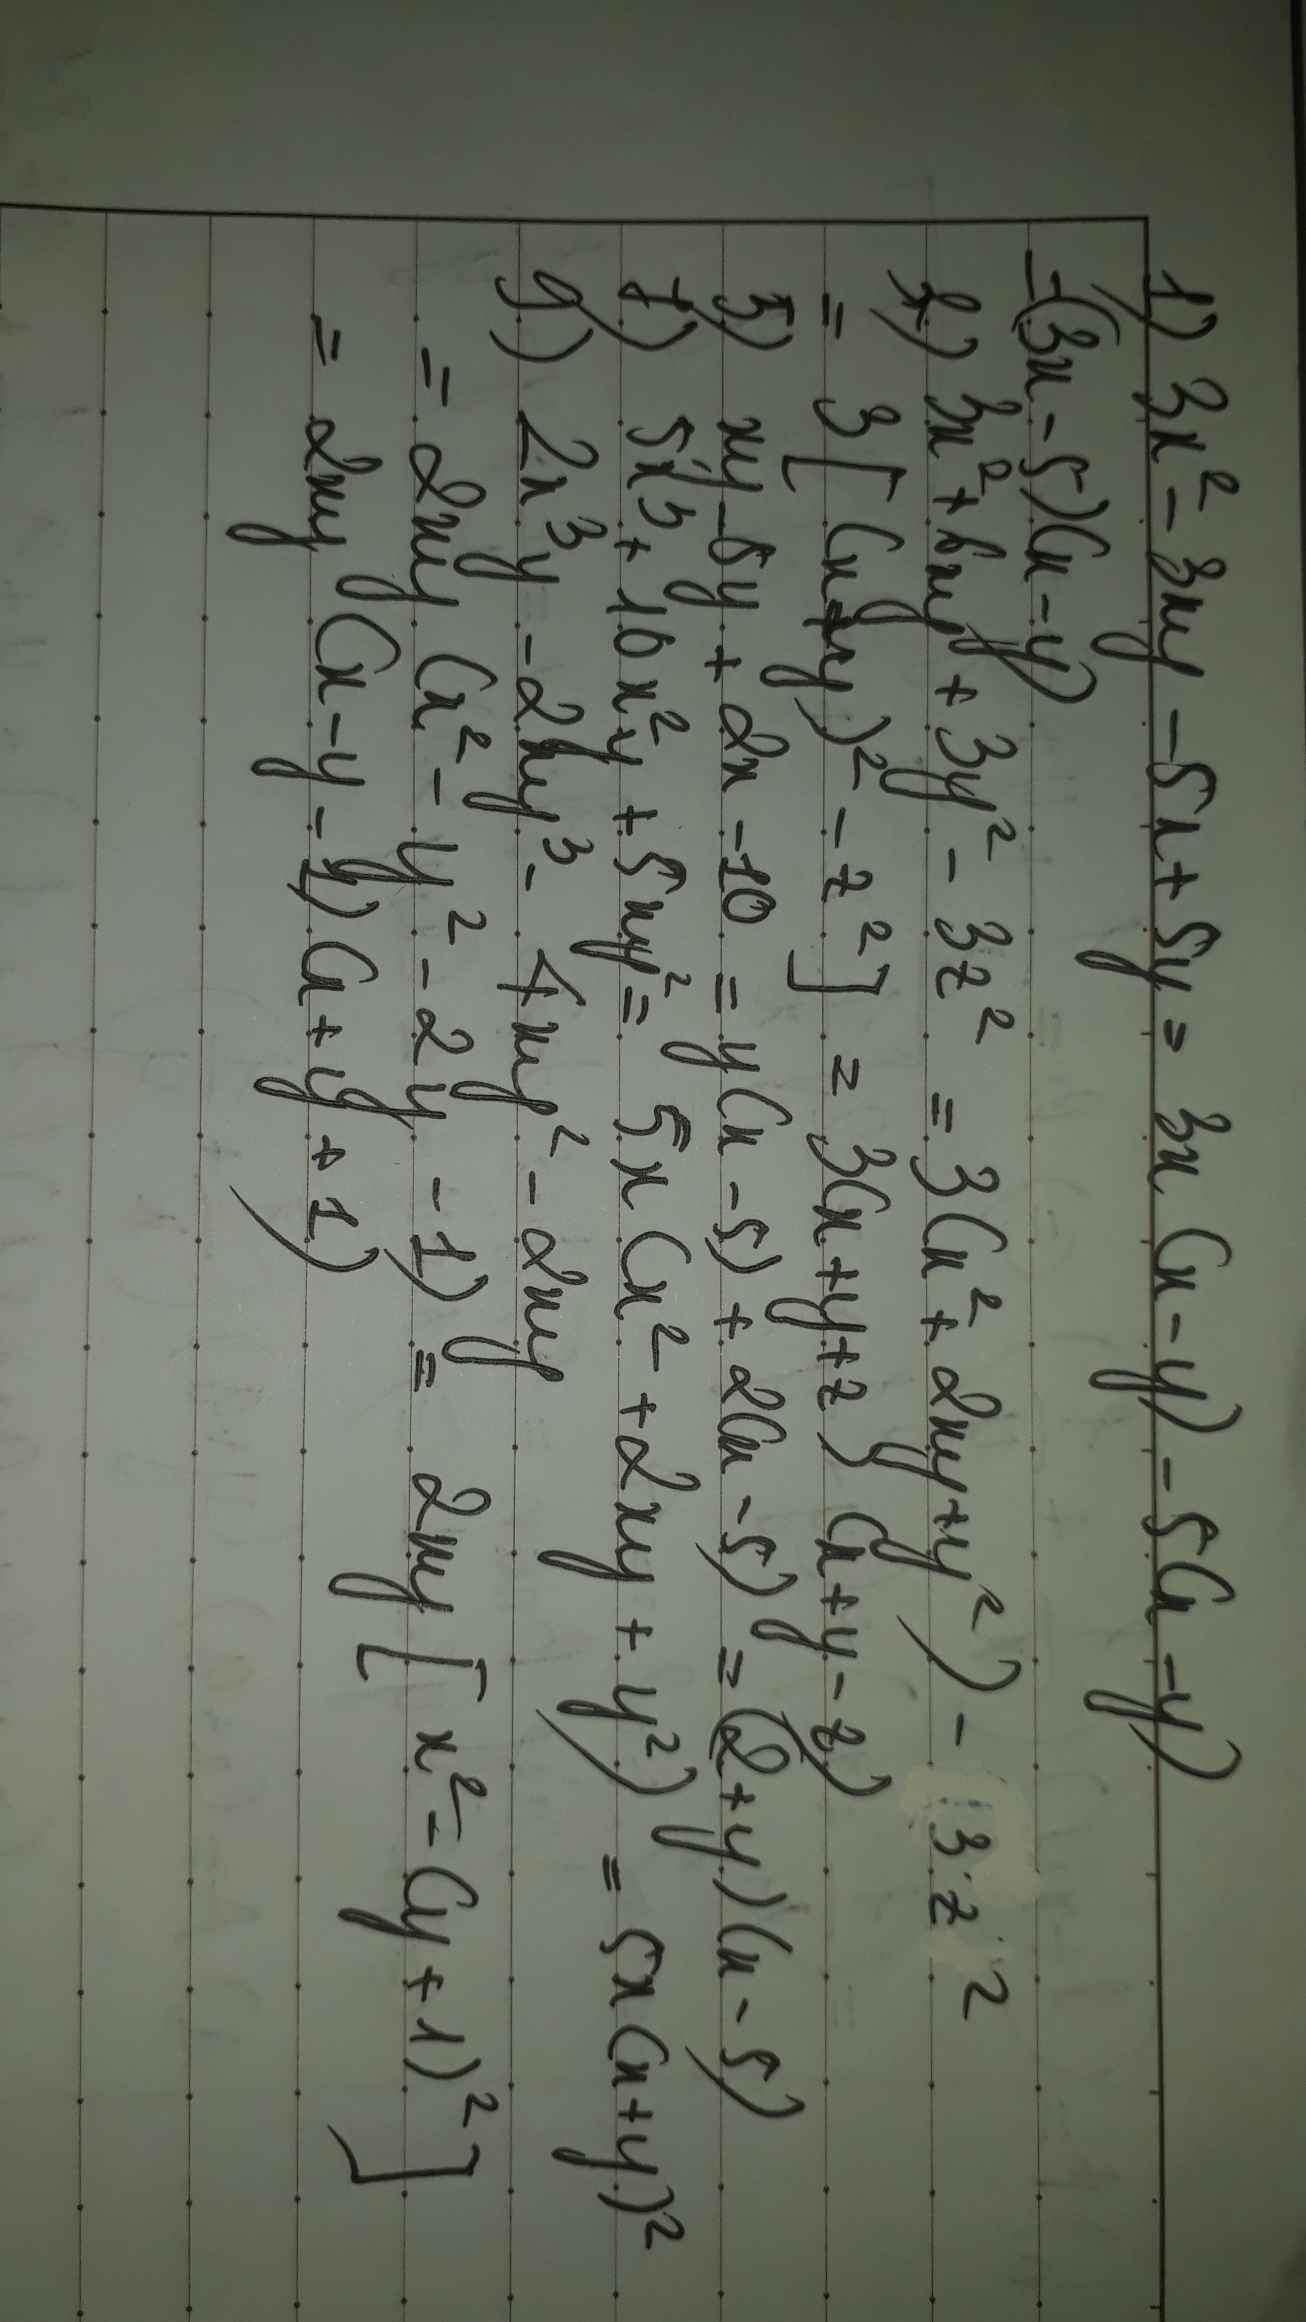 1) 3x² - 3xy - 5x + 5y = 3x (x - y) - 5(x - y)
= (3x - 5)(x - y)
3) 3x² + 6xy + 3y² - 3z² = 3(x² + 2xy + y²) - 3z²
= 3[(x + y)² - z²] = 3(x + y + z)(x + y - z)
5) xy - 5y + 2x - 10 = y(x - 5) + 2(x - 5) = (2 + y)(x - 5)
7) 5x³ + 10x²y + 5xy² = 5x (x² + 2xy + y²) = 5x (x + y)²
9) 2x³y - 2xy³ - 4xy² - 2xy
= 2xy (x² - y² - 2y - 1) = 2xy [x² - (y + 1)²]
= 2xy (x - y - 1)(x + y + 1)